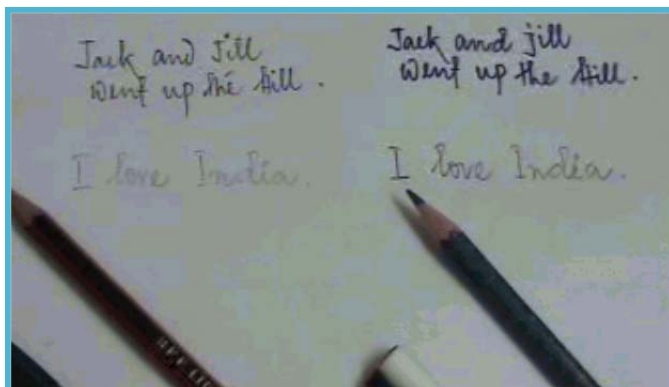 Jack and Jill
went up the Hill.
I love India.
Jack and jill
went up the Hill.
I love India.